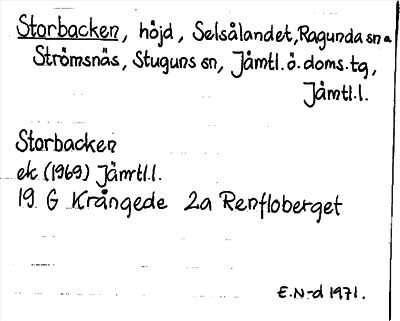 Storbacken, höjd, Selsålandet, Ragunda sn.
Strömsnäs, Stuguns sn, Jämtl.ö.doms.tg,
Jämtl.l.
Storbacken
ek (1969) Jämtl.l.
19 G Krångede 2a Renfloberget
E.N-d 1971.